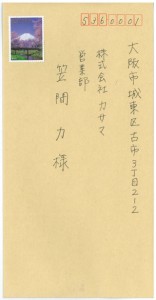 5360001
大阪市城東区古市3丁目2-2
株式会社カサマ
営業部
笠間力様